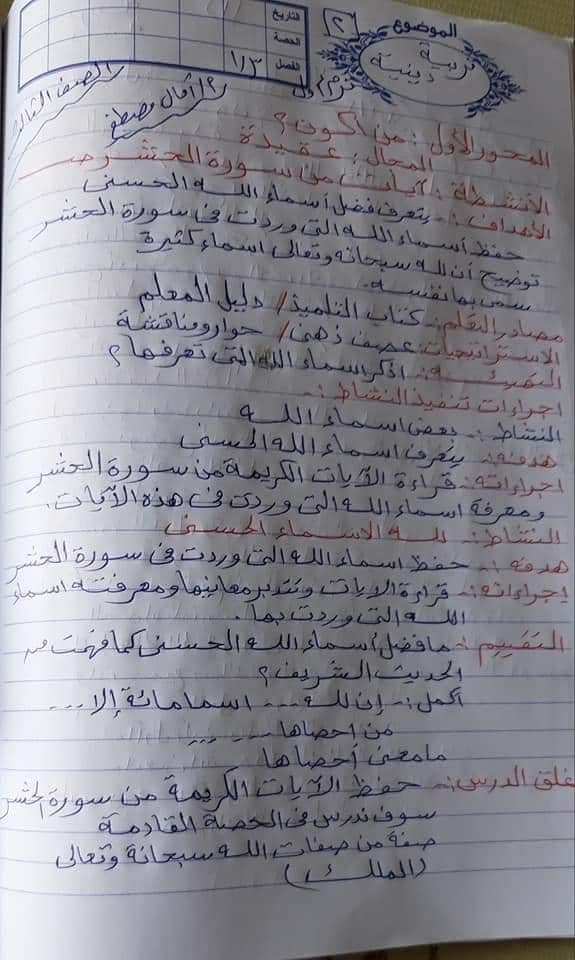 الموضوع
٢
تربية
دينية
التاريخ
الحصة
الفصل
١/٣
ترم أول
أ/ آمال مصطفى
الصف الثالث
المحور الأول : من أكون ؟
المجال : عقيدة
الأنشطة : آيات من سورة الحشر
الأهداف :- يتعرف فضل أسماء الله الحسنى
حفظ أسماء الله التى وردت فى سورة الحشر
توضيح أن لله سبحانه وتعالى اسماء كثيرة
سمى بها نفسه.
مصادر التعلم: كتاب التلميذ / دليل المعلم
الاستراتيجيات عصف ذهنى / حوار ومناقشة
التهيئـــة: اذكر اسماء الله التى تعرفها ؟
اجراءات تنفيذ النشاط :-
النشاط :- بعض اسماء اللـه
هدفه: يتعرف اسماء الله الحسنى
اجراءاته: قراءة الآيات الكريمة من سورة الحشر
ومعرفة اسماء الله التى وردت فى هذه الآيات.
النشاط :- للـه الاسماء الحسنى
هدفه :- حفظ اسماء الله التى وردت فى سورة الحشر
إجراءاته: قراءة الآيات وتتدبر معاينها ومعرفته اسماء
الله التى وردت بها.
التقييم : ما فضل أسماء الله الحسنى كما فهمت من
الحديث الشريف ؟
أكمل :- إن لله --- اسما مائة إلا ---
من احصاها --- ---
ما معنى أحصاها
غلق الدرس :- حفظ الآيات الكريمة من سورة الحشر
سوف ندرس فى الحصة القادمة
صفة من صفات الله سبحانة وتعالى
(الملك)